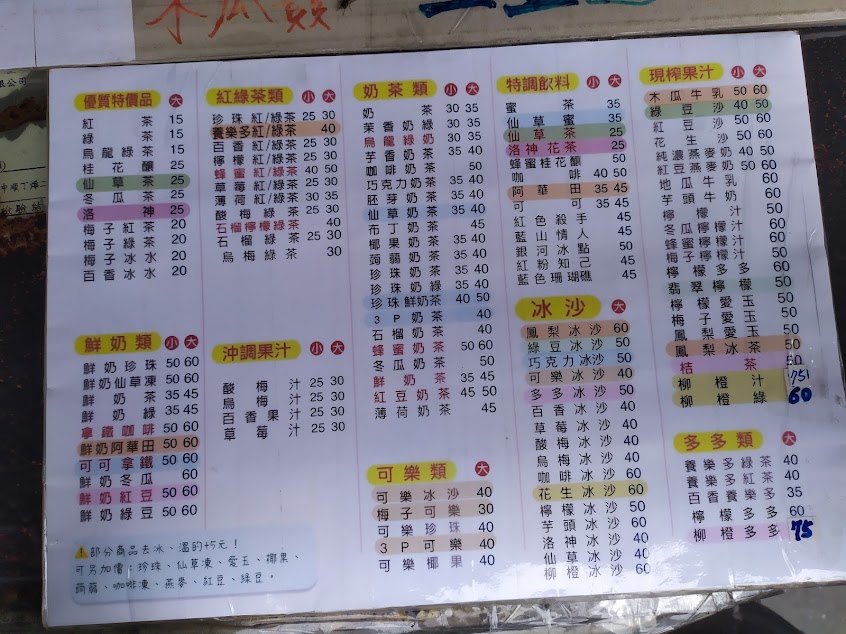 木瓜
限公司
優質特價品 大
紅茶 15
綠茶 15
烏龍綠茶 20
桂花釀 25
仙草茶 25
冬瓜茶 25
洛神 25
梅子紅茶 20
梅子綠茶 20
梅子冰水 20
百香冰水 20
鮮奶類 小 大
鮮奶珍珠 50 60
鮮奶仙草凍 50 60
鮮奶茶 35 45
鮮奶綠 35 45
拿鐵咖啡 50 60
鮮奶阿華田 50 60
可可拿鐵 50 60
鮮奶冬瓜 60
鮮奶紅豆 50 60
鮮奶綠豆 50 60
部分商品去冰、溫的+5元！
可另加價：珍珠、仙草凍、愛玉、椰果、
蒟蒻、咖啡凍、燕麥、紅豆、綠豆。
紅綠茶類 小 大
珍珠紅/綠茶 25 30
養樂多紅/綠茶 40
百香紅/綠茶 25 30
檸檬紅/綠茶 25 30
蜂蜜紅/綠茶 40 50
草莓紅/綠茶 25 30
薄荷紅/綠茶 30 35
酸梅綠茶 25 30
石榴檸檬綠茶 40
石榴綠茶 25 30
烏梅綠茶 30
沖調果汁 小 大
酸梅汁 25 30
烏梅汁 25 30
百香果汁 25 30
草莓汁 25 30
奶茶類 小 大
奶茶 30 35
茉香奶綠 30 35
烏龍綠奶 30 35
芋香奶茶 35 40
咖啡奶茶 50
巧克力奶茶 35 40
胚芽奶茶 35 40
仙草奶茶 35 40
布丁奶茶 45
椰果奶茶 35 40
蒟蒻奶茶 35 40
珍珠奶茶 35 40
珍珠奶綠 35 40
珍珠鮮奶茶 40 50
3P奶茶 50
石榴奶茶 40
蜂蜜奶茶 50 60
冬瓜奶茶 50
鮮奶茶 35 45
紅豆奶茶 45 50
薄荷奶茶 45
可樂類 大
可樂冰沙 40
梅子可樂 30
可樂珍珠 40
3P可樂 40
可樂椰果 40
特調飲料 小 大
蜜茶 35
仙草蜜 35
仙草茶 25
洛神花茶 25
蜂蜜桂花釀 50
咖啡 40 50
阿華田 35 45
可可 35 45
紅色殺手 45
藍山情人 45
銀河冰點 50
紅粉知己 45
藍色珊瑚礁 45
冰沙 大
鳳梨冰沙 60
綠豆冰沙 50
巧克力冰沙 50
可樂冰沙 40
多多冰沙 50
百香冰沙 40
草莓冰沙 40
酸梅冰沙 40
烏梅冰沙 40
咖啡冰沙 60
花生冰沙 60
檸檬冰沙 50
芋頭冰沙 60
洛神冰沙 40
仙草冰沙 40
柳橙冰沙 60
現榨果汁 小 大
木瓜牛乳 50 60
綠豆沙 40 50
紅豆沙 50
花生沙 50
純濃燕麥奶 40 50
紅豆燕麥奶 50 60
地瓜牛乳 60
芋頭牛奶 60
檸檬汁 50
冬瓜檸檬汁 50
蜂蜜檸檬汁 60
梅子檸檬汁 50
檸檬多多 60
翡翠檸檬 50
檸檬愛玉 50
梅子愛玉 50
鳳梨愛玉 50
鳳梨冰茶 50
桔茶 50
柳橙汁 75
柳橙綠 60
多多類 大
養樂多綠茶 40
養樂多紅茶 40
百香養樂多 35
檸檬多多 60
柳橙多多 75